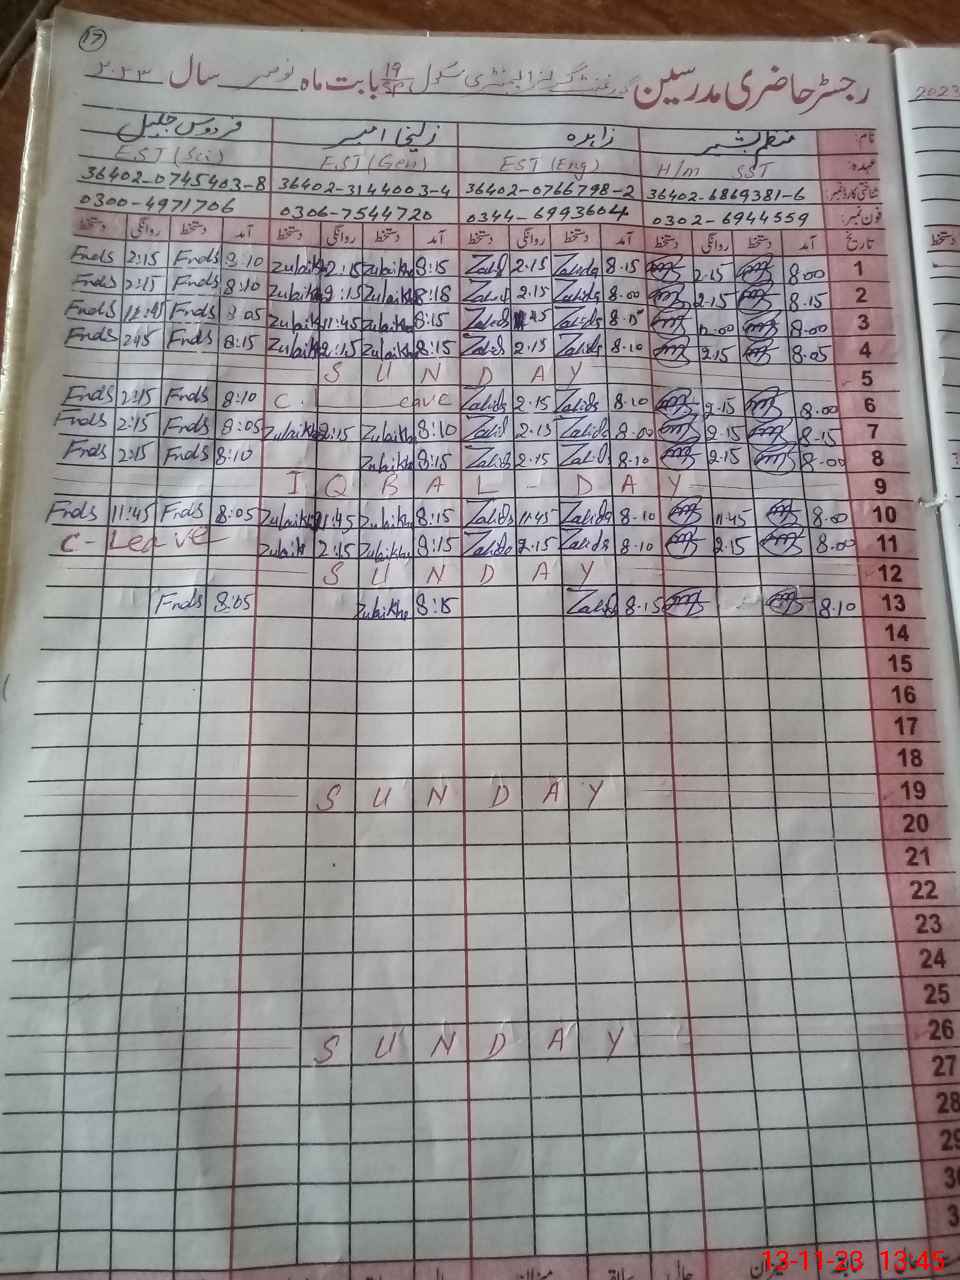 ١٧
رجسٹر حاضری مدرسین گورنمنٹ گرلز ایلیمنٹری سکول 19/SP بابت ماہ نومبر سال ٢٠٢٣
2023
نام: زاہدہ زلیخا امبر فردوس جلیل
عہدہ H/m SST EST (Eng) EST (Gen) EST (Sci)
شناختی کارڈ نمبر: 36402-6869381-6 36402-0766798-2 36402-3144003-4 36402-0745403-8
فون نمبر: 0302-6944559 0344-6993604 0306-7544720 0300-4971706
تاریخ آمد دستخط روانگی دستخط آمد دستخط روانگی دستخط آمد دستخط روانگی دستخط آمد دستخط روانگی دستخط
1 8.00 2.15 8.15 Zahida 2.15 Zahida 8:15 Zulaikha 2:15 Zulaikha 8:10 Frds 2:15 Frds
2 8.15 2.15 8.00 Zahida 2.15 Zahida Zulaikha 2:15 Zulaikha 8:10 Frds 2:15 Frds
3 8.00 Zahida Zahida 8:15 Zulaikha 11:45 Zulaikha 8:05 Frds 11:45 Frds
4 8.05 2.15 8.10 Zahida 2.15 Zahida 8:15 Zulaikha 2:15 Zulaikha 8:15 Frds Frds
5 SUNDAY
6 8.00 2.15 8.10 Zahida 2.15 Zahida C. Leave 8:10 Frds 2:15 Frds
7 8.15 2.15 8.00 Zahida 2.15 Zahida 8:10 Zulaikha 2:15 Zulaikha 8:05 Frds 2:15 Frds
8 8.00 2.15 8.10 Zahida 2.15 Zahida 8:15 Zulaikha 8:10 Frds 2:15 Frds
9 IQBAL DAY
10 8.00 11.45 8.10 Zahida 11.45 Zahida 8:15 Zulaikha 11:45 Zulaikha 8:05 Frds 11:45 Frds
11 8.00 2.15 8.10 Zahida 2.15 Zahida 8:15 Zulaikha 2:15 Zulaikha C-Leave
12 SUNDAY
13 8.10 8.15 Zahida 8:15 Zulaikha 8:05 Frds
14
15
16
17
18
19 SUNDAY
20
21
22
23
24
25
26 SUNDAY
27
28
29
13-11-23 13:45